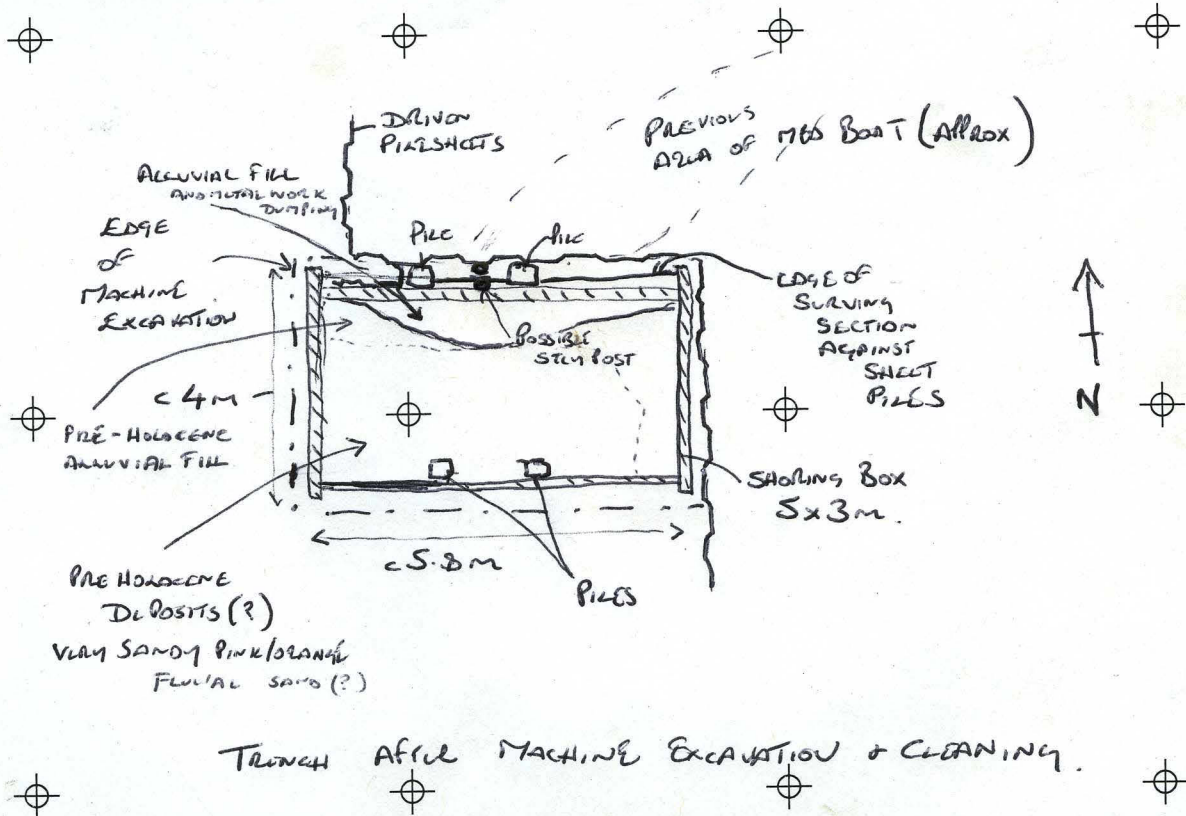 DRIVEN
PILESHEETS
PREVIOUS
AREA OF MED BOAT (APPROX)
ALLUVIAL FILL
AND METAL WORK
DUMPING
EDGE
OF
MACHINE
EXCAVATION
PILE
PILE
EDGE OF
SURVING
SECTION
AGAINST
SHEET
PILES
POSSIBLE
STEM POST
c 4M
N
PRE-HOLOCENE
ALLUVIAL FILL
SHORING BOX
5x3M.
c 5.8M
PILES
PRE HOLOCENE
DEPOSITS (?)
VERY SANDY PINK/ORANGE
FLUVIAL SAND (?)
TRENCH AFTER MACHINE EXCAVATION & CLEANING.